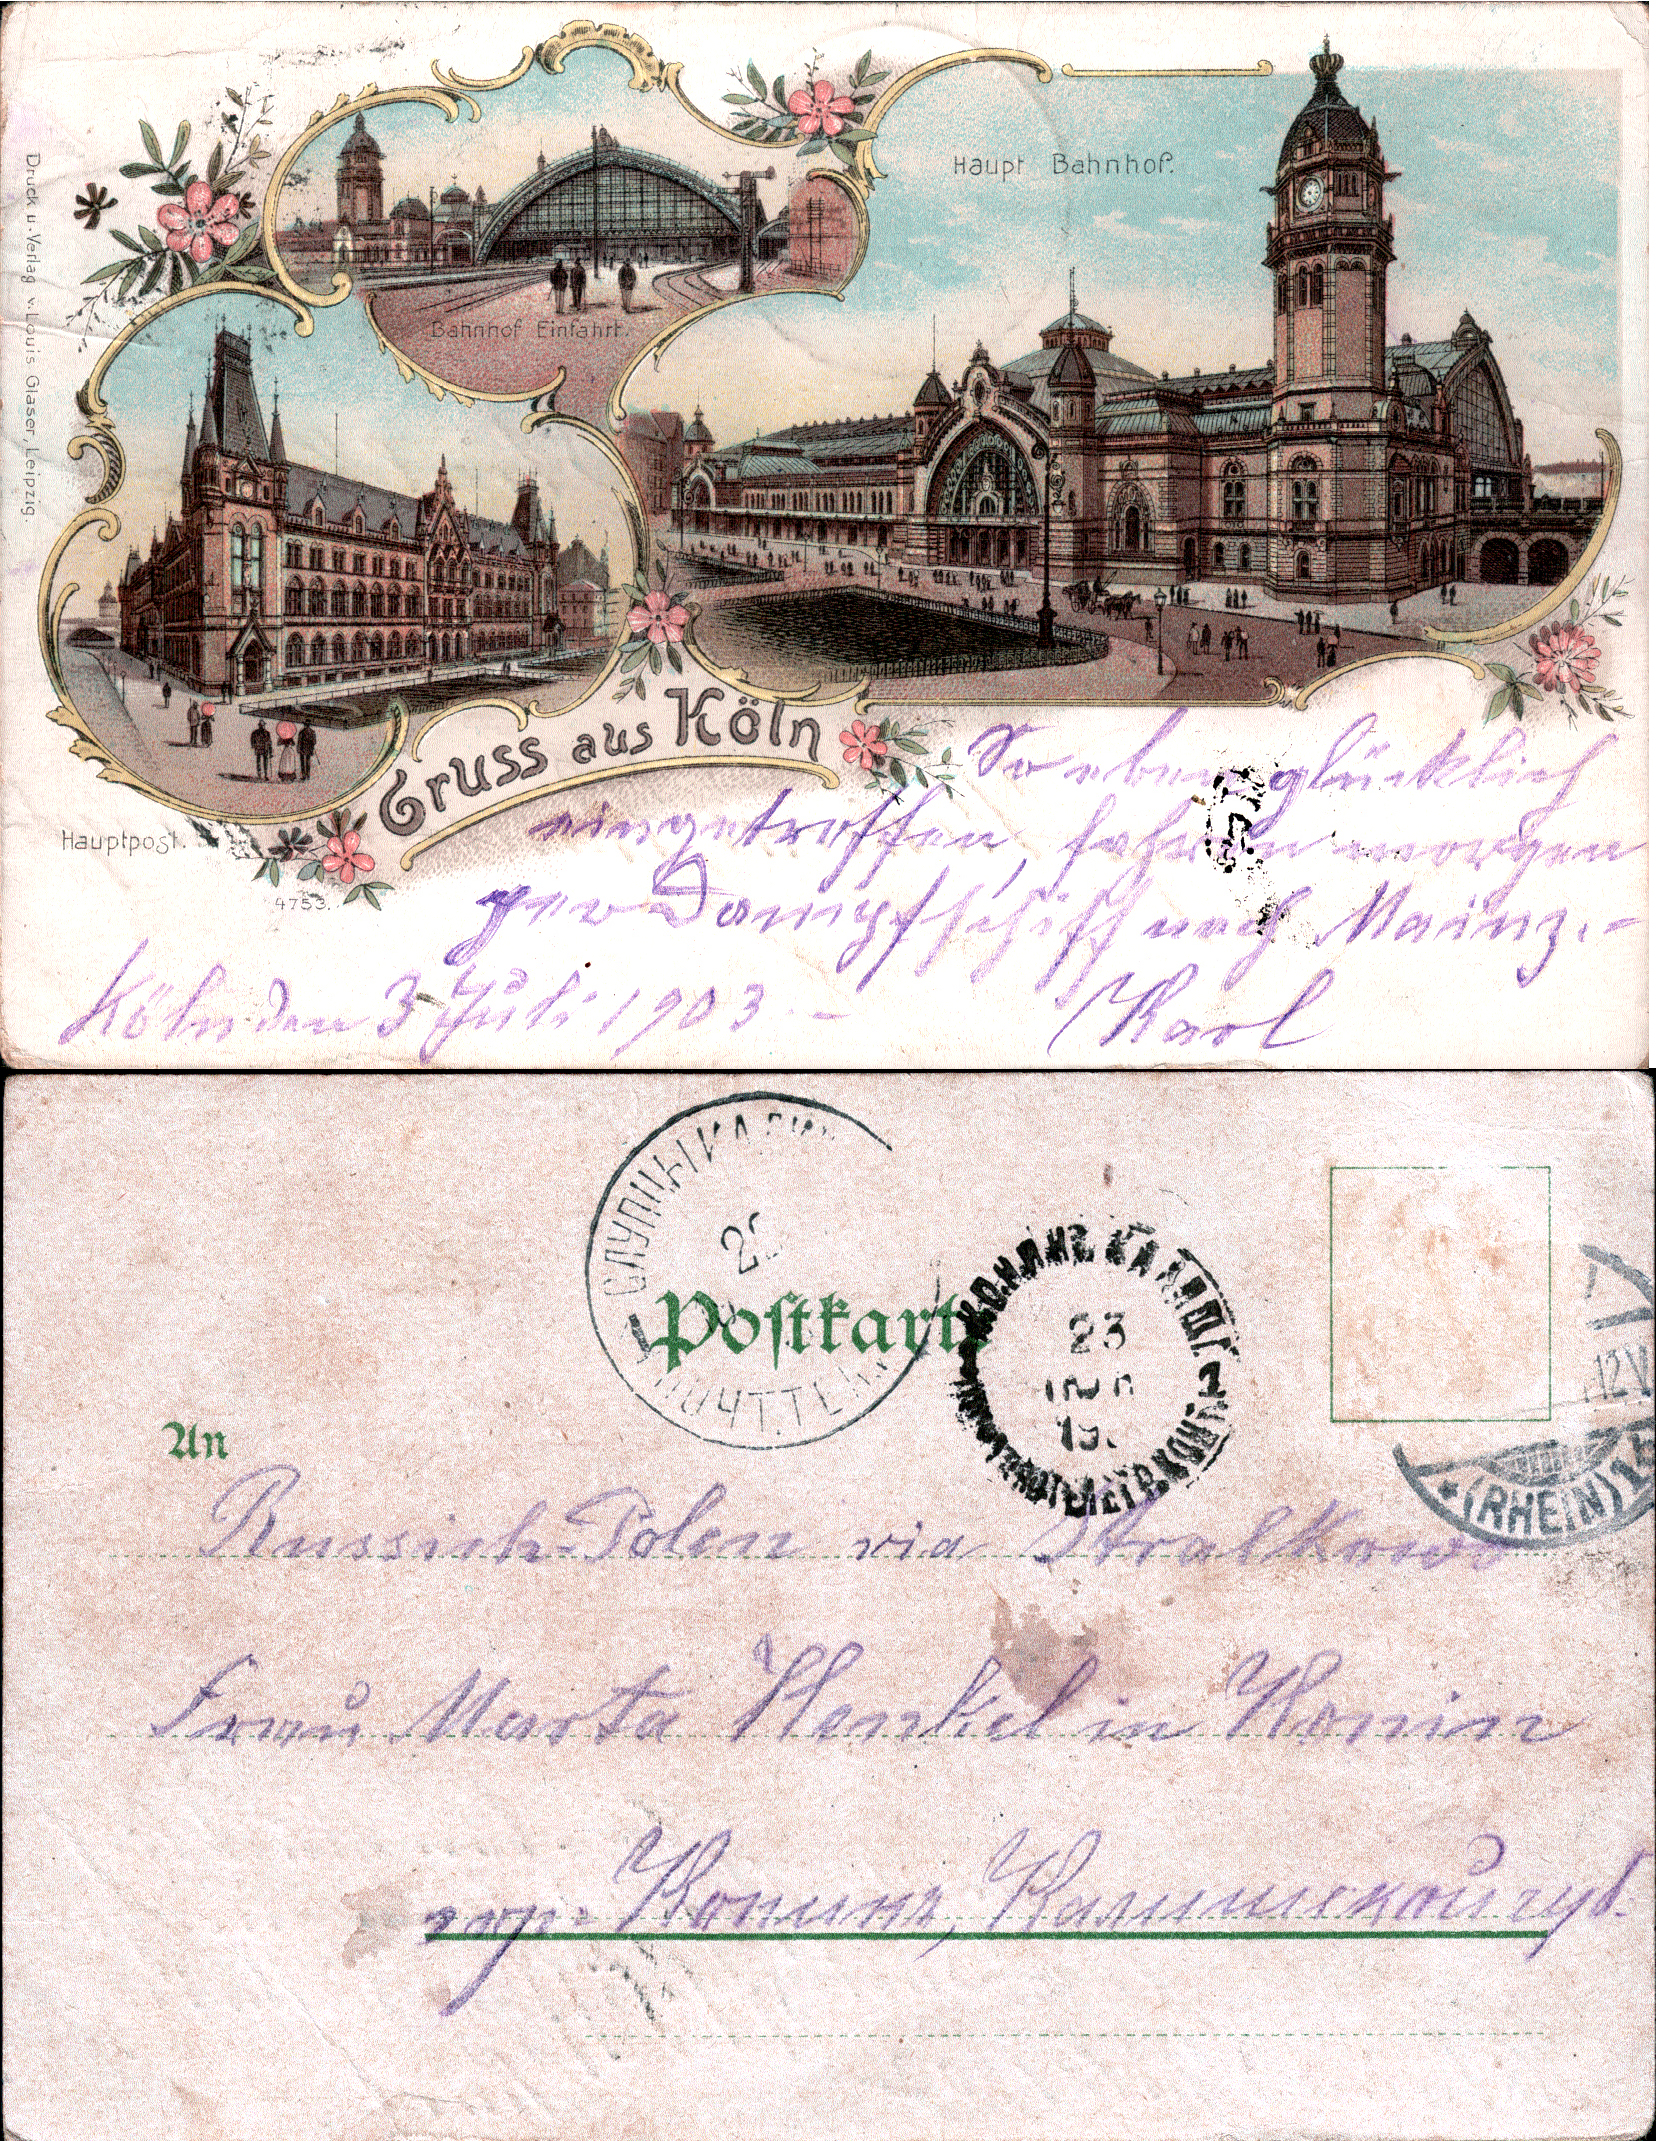 Druck u. Verlag v. Louis Glaser, Leipzig.
Haupt Bahnhof.
Bahnhof Einfahrt.
Hauptpost.
4753.
Gruss aus Köln
So eben glücklich
eingetroffen, fahren morgen
per Dampfschiff nach Mainz.-
Köln den 3 Juli 1903.-
Karl
СЛУПЦЫ КАЛИШ
ПОЧ. ТЕЛ.
КОНИНЪ КАЛИШ. Г.
23
19
(RHEIN) 1
12 V
Postkarte
An
Russisch-Polen via Stralkowo
Frau Marta Henkel in Konin
гор. Конинъ, Калишской губ.